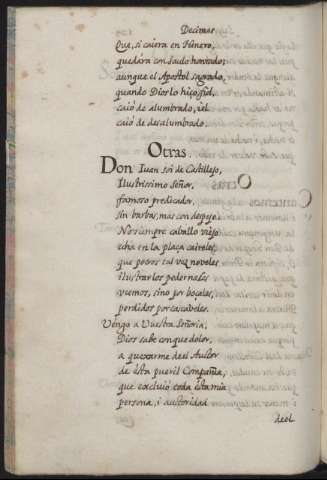 Decimas
Que, si caiera en Henero,
quedara con Saulo honrado;
aunque el Apostol sagrado,
quando Dios lo hiço fiel,
caió de alumbrado, i el
caió de desalumbrado.
Otras.
Don Iuan soi de Castillejo,
Ilustrissimo Señor,
famoso predicador,
sin barbas, mas con despejo.
No siempre caballo viejo
echa en la plaça caireles,
que potros tal vez noveles
ilustrar los pedernales
vuemos, sino por bocales,
perdidos por cascabeles.
Vengo a Vuestra Señoria,
Dios sabe con que dolor,
a quexarme de el Auctor
de esta pueril Compañia,
que excluió toda esta mia
persona, i auctoridad
del